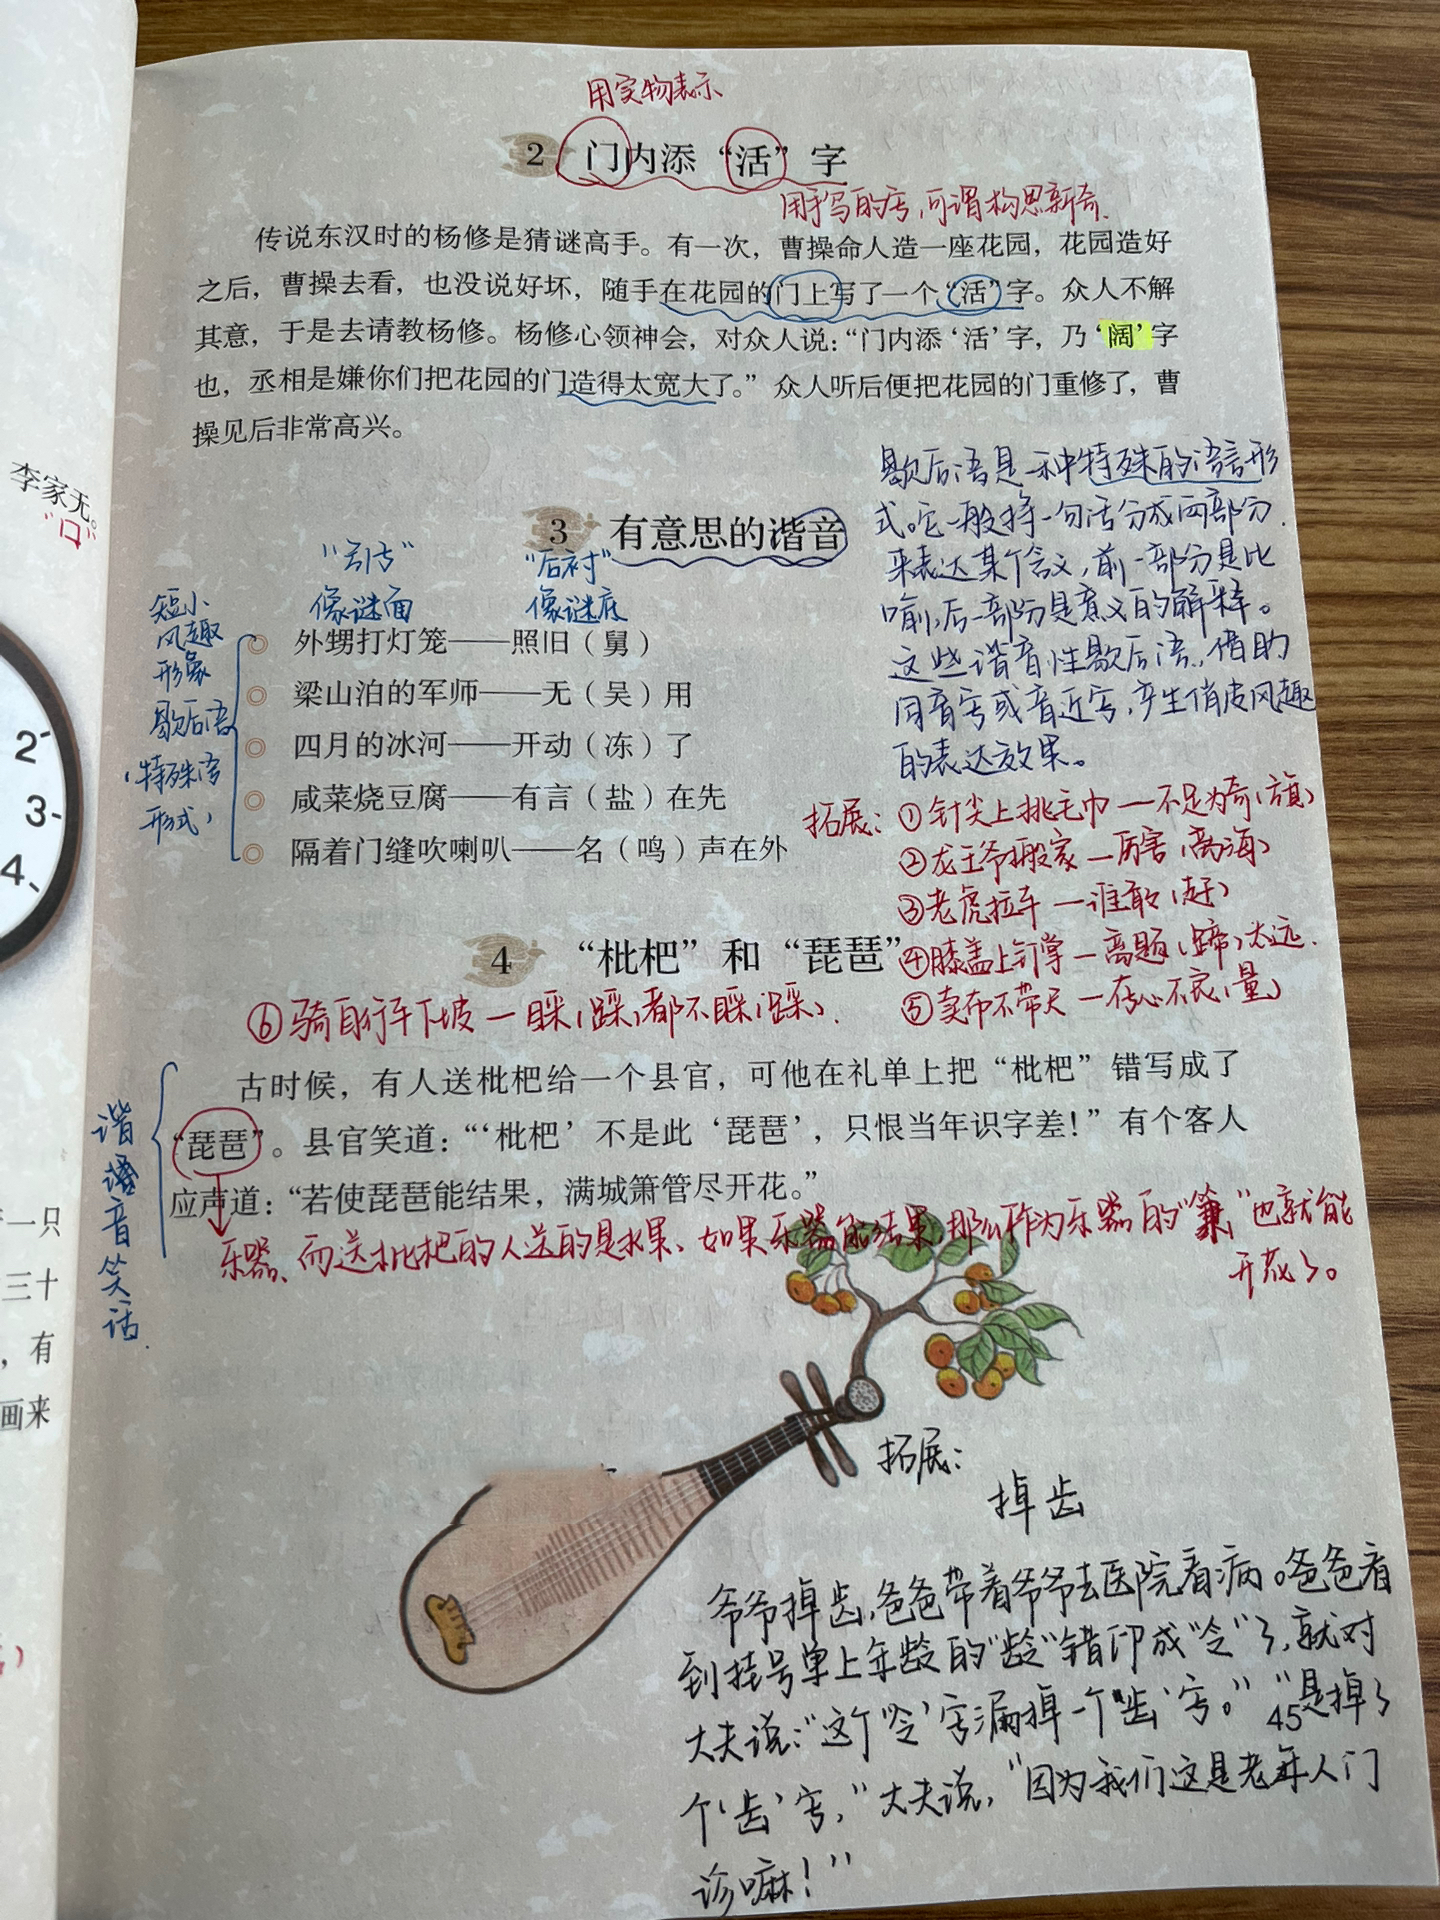 用实物表示
2 门内添“活”字
用手写的字,可谓构思新奇.
传说东汉时的杨修是猜谜高手。有一次，曹操命人造一座花园，花园造好
之后，曹操去看，也没说好坏，随手在花园的门上写了一个“活”字。众人不解
其意，于是去请教杨修。杨修心领神会，对众人说：“门内添‘活’字，乃‘阔’字
也，丞相是嫌你们把花园的门造得太宽大了。”众人听后便把花园的门重修了，曹
操见后非常高兴。
李家无。
“口”
歇后语是一种特殊的语言形
式。它一般将一句话分成两部分.
来表达某个含义,前一部分是比
喻,后一部分是意义的解释。
这些谐音性歇后语,借助
同音字或音近字,产生俏皮风趣
的表达效果。
3 有意思的谐音
“引言” “后衬”
像谜面 像谜底
短小
风趣
形象
歇后语
(特殊语
形式)
外甥打灯笼——照旧（舅）
梁山泊的军师——无（吴）用
四月的冰河——开动（冻）了
咸菜烧豆腐——有言（盐）在先
隔着门缝吹喇叭——名（鸣）声在外
拓展: ①针尖上挑毛巾—不足为奇(旗)
②龙王爷搬家—厉害(离海)
③老虎拉车—谁敢(赶)
④膝盖上钉掌—离题(蹄)太远.
⑤卖布不带尺—存心不良(量)
⑥骑自行车下坡—睬(踩)都不睬(踩).
4 “枇杷”和“琵琶”
古时候，有人送枇杷给一个县官，可他在礼单上把“枇杷”错写成了
“琵琶”。县官笑道：“‘枇杷’不是此‘琵琶’，只恨当年识字差！”有个客人
应声道：“若使琵琶能结果，满城箫管尽开花。”
谐
音
笑
话.
乐器、而送枇杷的人送的是水果、如果乐器能结果,那么作为乐器的“ ”也就能
开花了。
2
3
4
一只
三十
，有
画来
拓展:
掉齿
爷爷掉齿,爸爸带着爷爷去医院看病。爸爸看
到挂号单上年龄的“龄”错印成“令”了,就对
大夫说:“这个‘令’字漏掉一个‘齿’字。”“是掉了
45
个‘齿’字,”大夫说,“因为我们这是老年人门
诊嘛!”